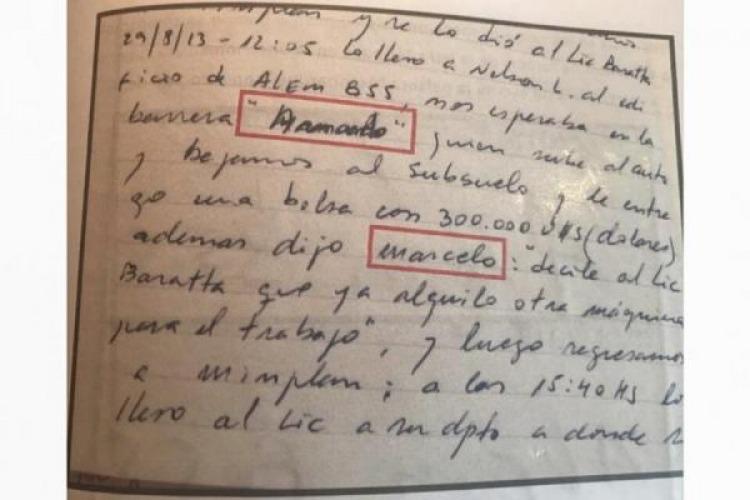 minplan y se lo dió al Lic Baratta
29/8/13 - 12:05 lo llevo a Nelson L. al edi
ficio de ALEM 855, nos esperaba en la
barrera " " quien sube al auto
y bajamos al subsuelo y le entre
go una bolsa con 300.000 U$S (dolares)
ademas dijo Marcelo: "decile al Lic
Baratta que ya alquilo otra máquina
para el trabajo", y luego regresamos
a minplan; a las 15:40 HS lo
llevo al Lic a su dpto a donde